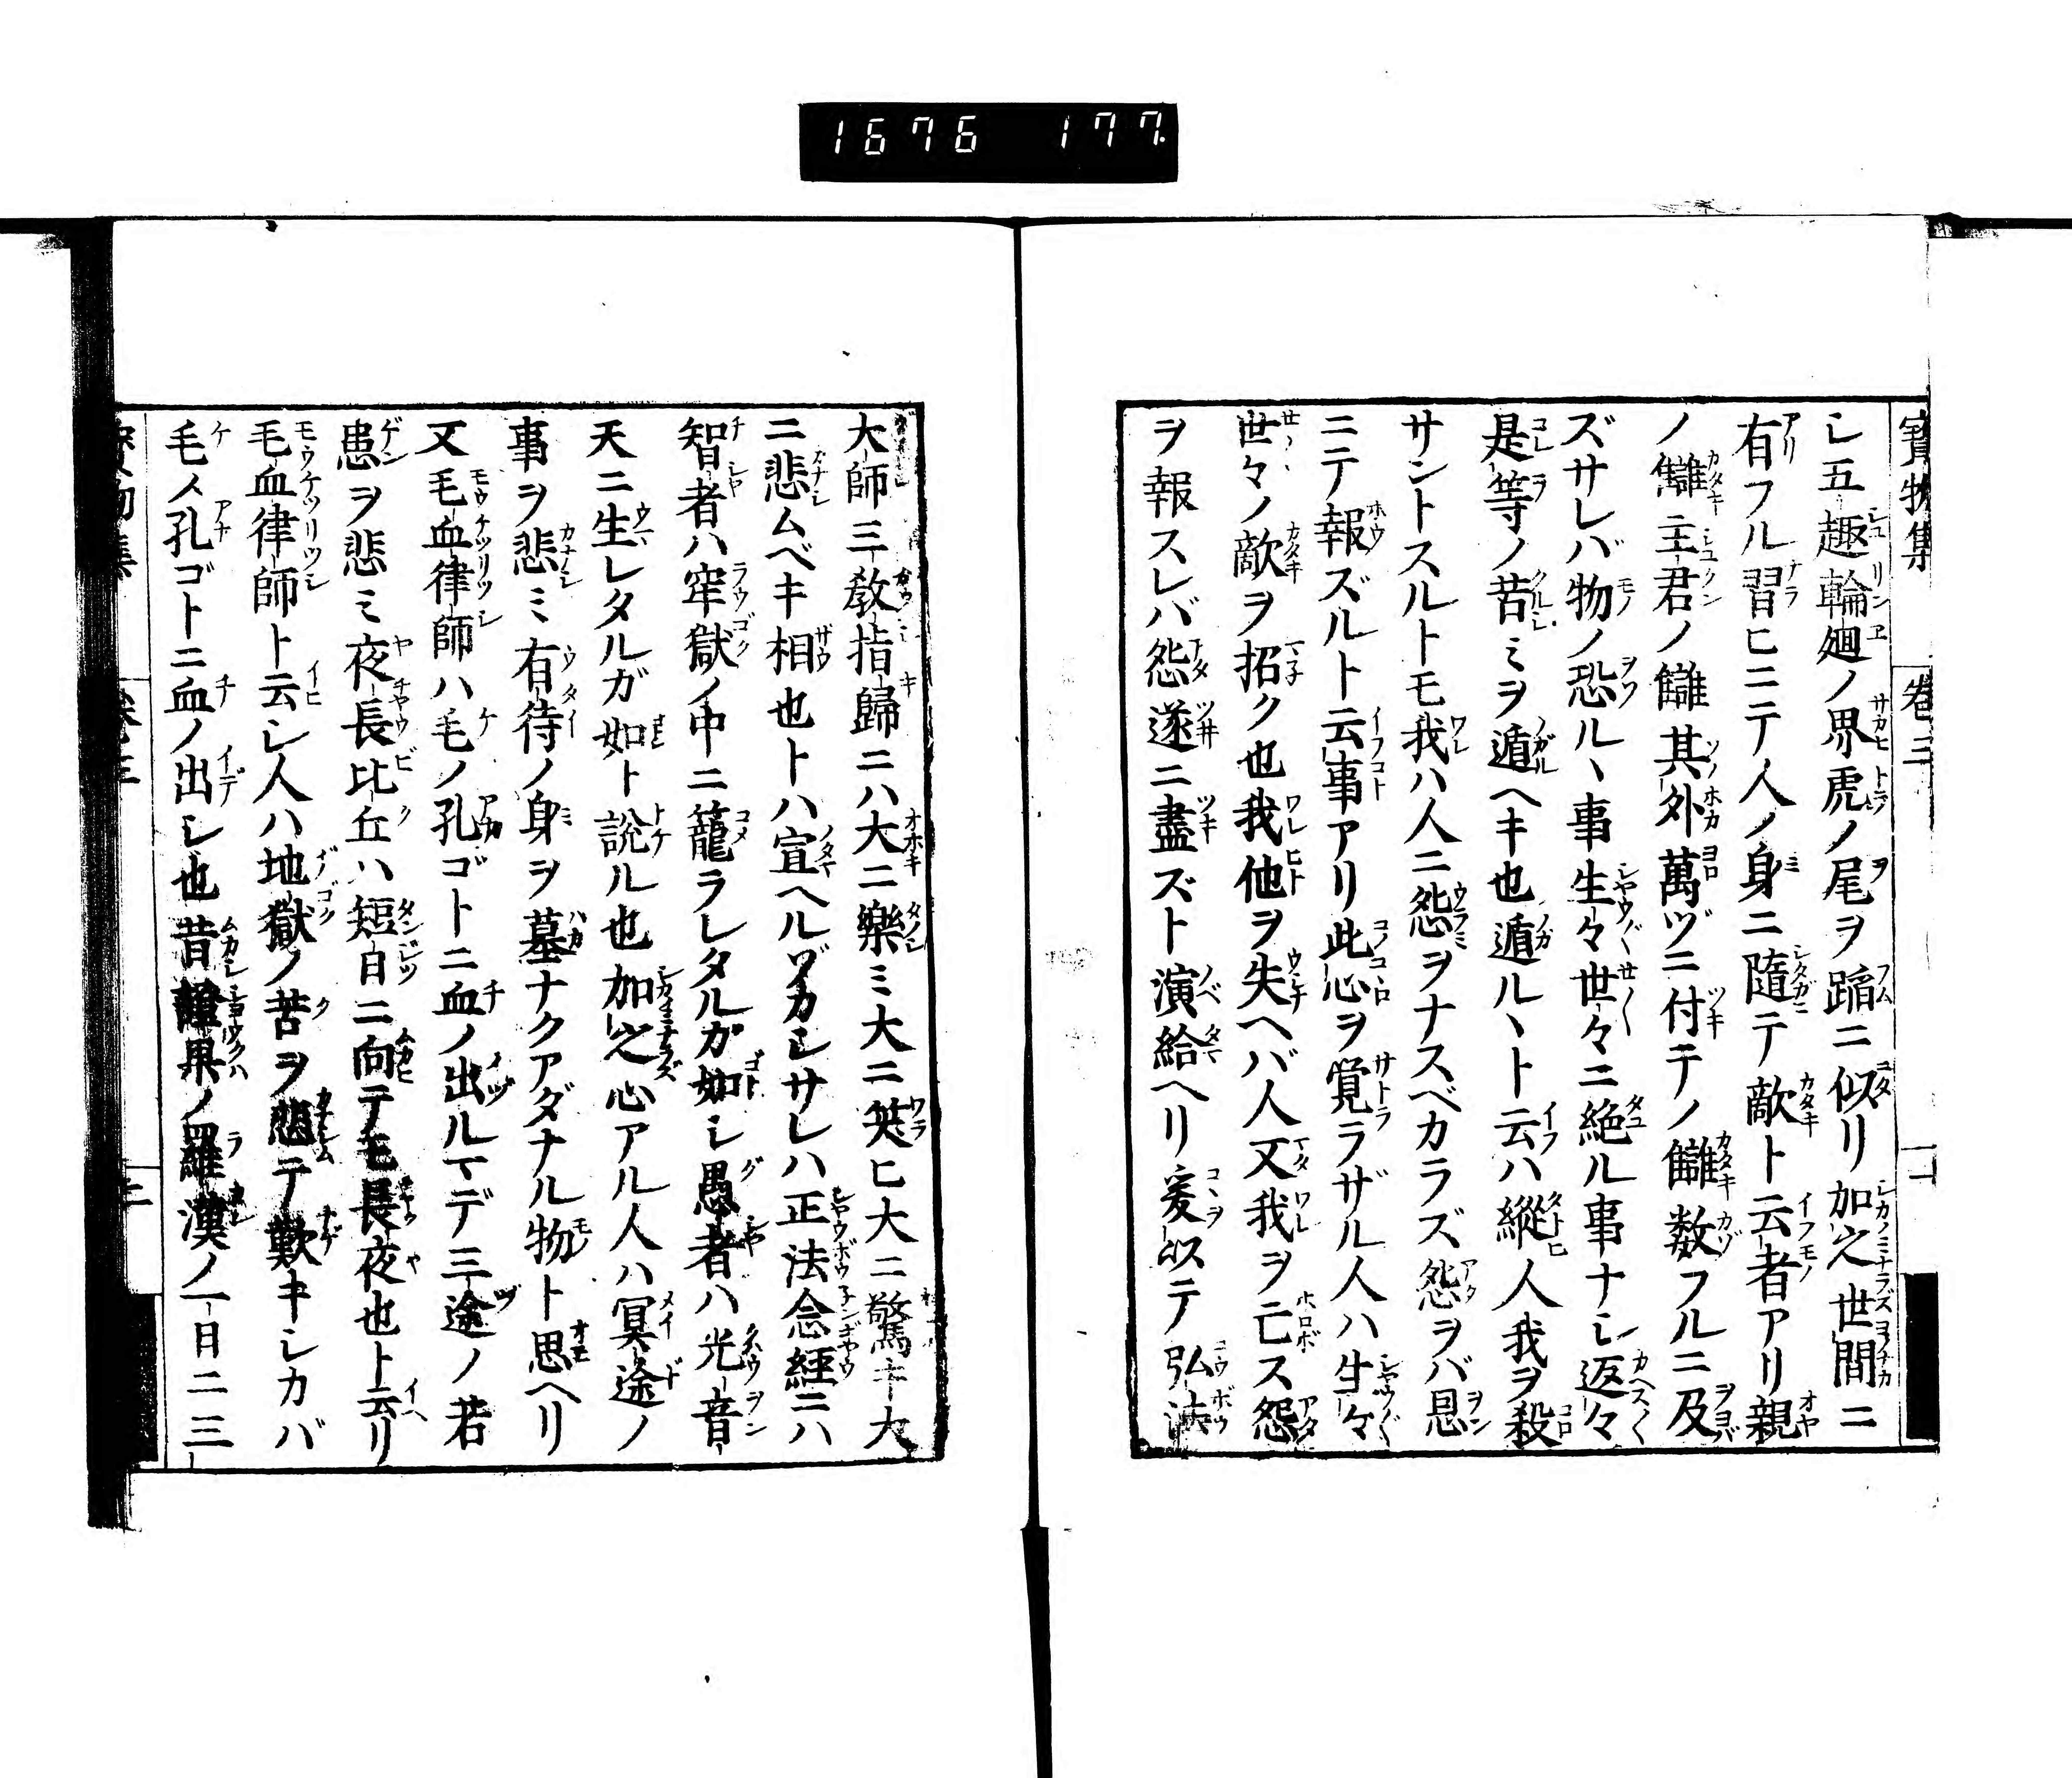 1676 177
寳物集 卷三
シ五趣輪廻ノ界虎ノ尾ヲ蹈ニ似リ加之世間ニ
有フル習ヒニテ人ノ身ニ隨テ敵ト云者アリ親
ノ讎主君ノ讎其外萬ヅニ付テノ讎数フルニ及
ズサレバ物ノ恐ルヽ事生々世々ニ絶ル事ナシ返々
是等ノ苦ミヲ遁ヘキ也遁ルヽト云ハ縱人我ヲ殺
サントスルトモ我ハ人ニ怨ヲナスベカラズ怨ヲバ恩
ニテ報ズルト云事アリ此心ヲ覺ラザル人ハ生々
世々ノ敵ヲ招ク也我他ヲ失ヘバ人又我ヲ亡ス怨
ヲ報スレバ怨遂ニ盡ズト演給ヘリ爰以テ弘法
大師三教指歸ニハ大ニ樂ミ大ニ笑ヒ大ニ驚キ大
ニ悲ムベキ相也トハ宣ヘルゾカシサレハ正法念經ニハ
智者ハ窂獄ノ中ニ籠ラレタルガ如シ愚者ハ光音
天ニ生レタルガ如ト説ル也加之心アル人ハ冥途ノ
事ヲ悲ミ有待ノ身ヲ墓ナクアダナル物ト思ヘリ
又毛血律師ハ毛ノ孔ゴトニ血ノ出ルマデ三途ノ若
患ヲ悲ミ夜長比丘ハ短日ニ向テモ長夜也ト云リ
毛血律師ト云シ人ハ地獄ノ苦ヲ悲テ歎キシカバ
毛ノ孔ゴトニ血ノ出シ也昔證果ノ羅漢ノ一日二三